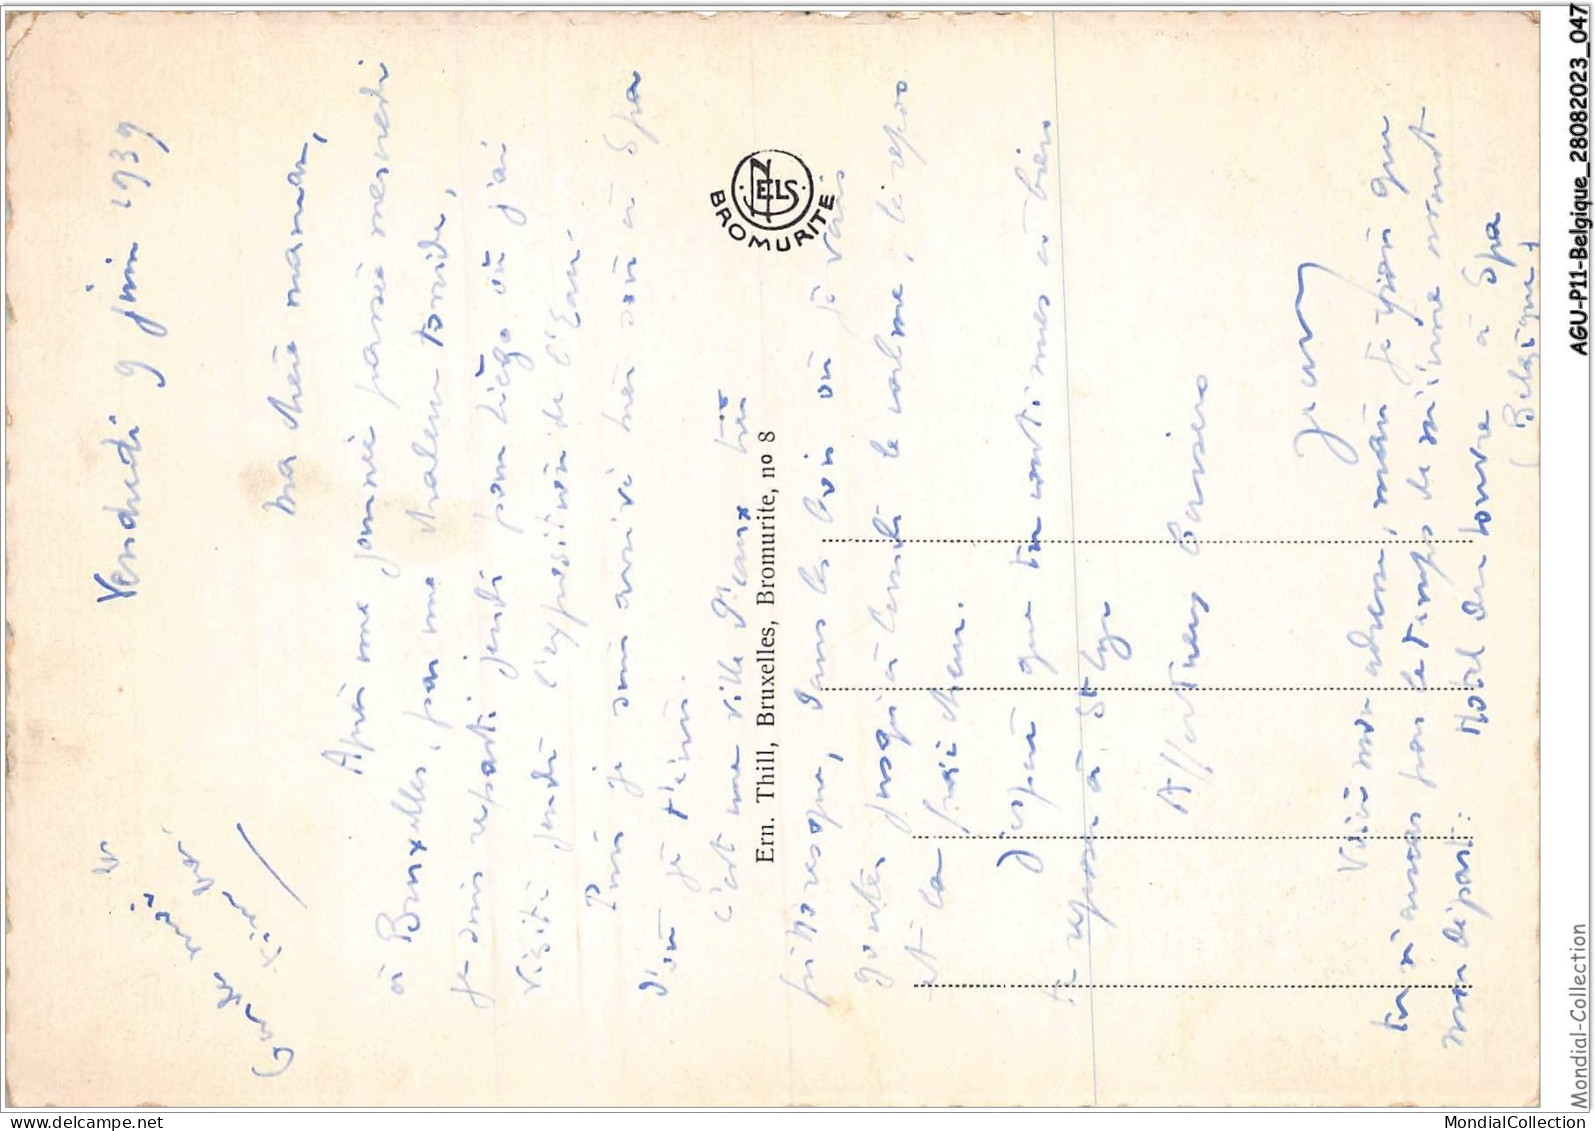 Vendredi 9 juin 1939
Ma chère maman,
Après une journée passée mercredi
à Bruxelles, par une chaleur torride,
je suis reparti jeudi pour Liège où j'ai
visité jeudi l'exposition de l'Eau.
Puis je suis arrivé hier soir à Spa
d'où je t'écris.
C'est une ville d'eaux très
pittoresque, dans les bois où je vais
goûter jusqu'à lundi le calme, le repos
et la fraîcheur.
J'espère que tu continues à bien
te reposer à St Lyé
Affectueux baisers
Jean
Voici mon adresse, mais je crois que
tu n'auras pas le temps de m'écrire avant
mon départ: Hotel du Louvre à Spa
(Belgique)
NELS
BROMURITE
Ern. Thill, Bruxelles, Bromurite, no 8
AGU-P11-Belgique_28082023_047
Mondial-Collection
www.delcampe.net
MondialCollection